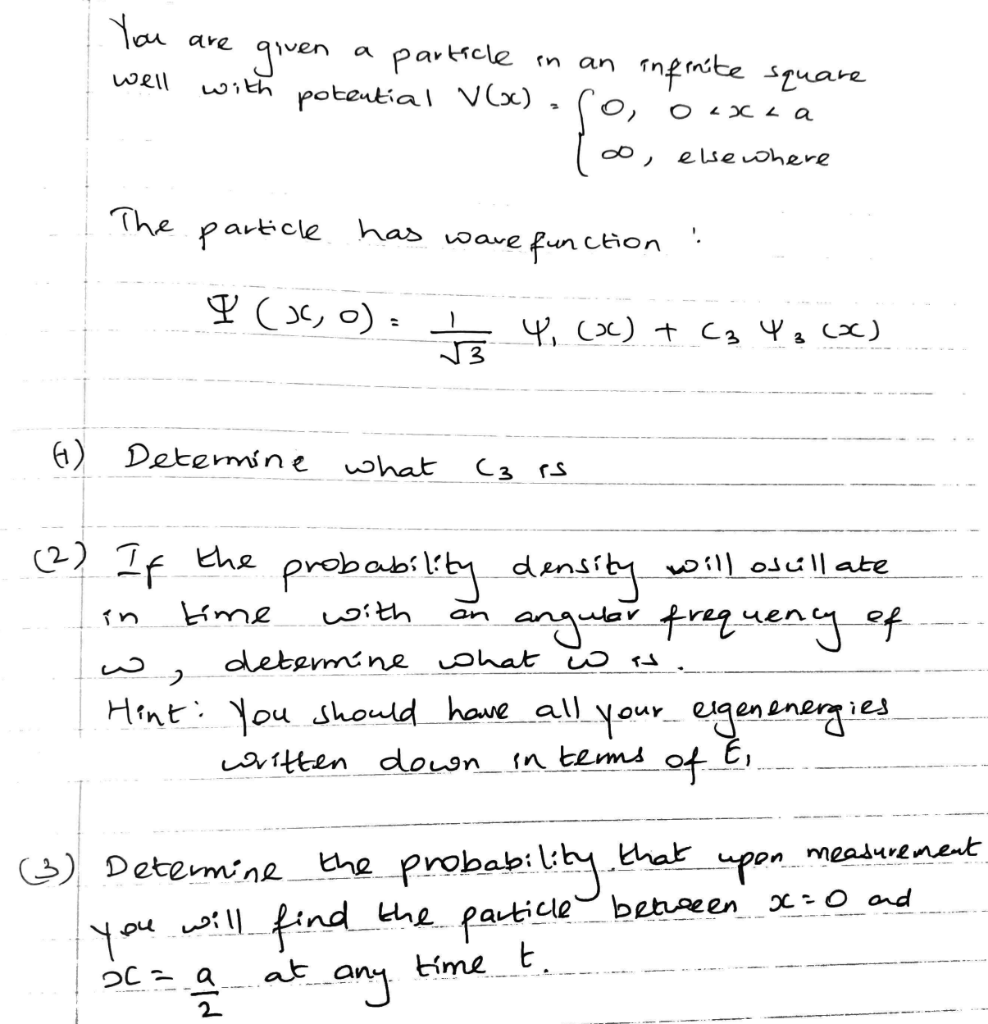 You are given a particle in an infinite square
well with potential V(x) = { 0, 0 < x < a
∞, elsewhere
The particle has wavefunction :
Ψ (x, 0) = 1/√3 ψ₁ (x) + c₃ ψ₃ (x)
(1) Determine what c₃ is
(2) If the probability density will oscillate
in time with an angular frequency of
ω, determine what ω is.
Hint: You should have all your eigenenergies
written down in terms of E₁
(3) Determine the probability that upon measurement
you will find the particle between x = 0 and
x = a/2 at any time t.